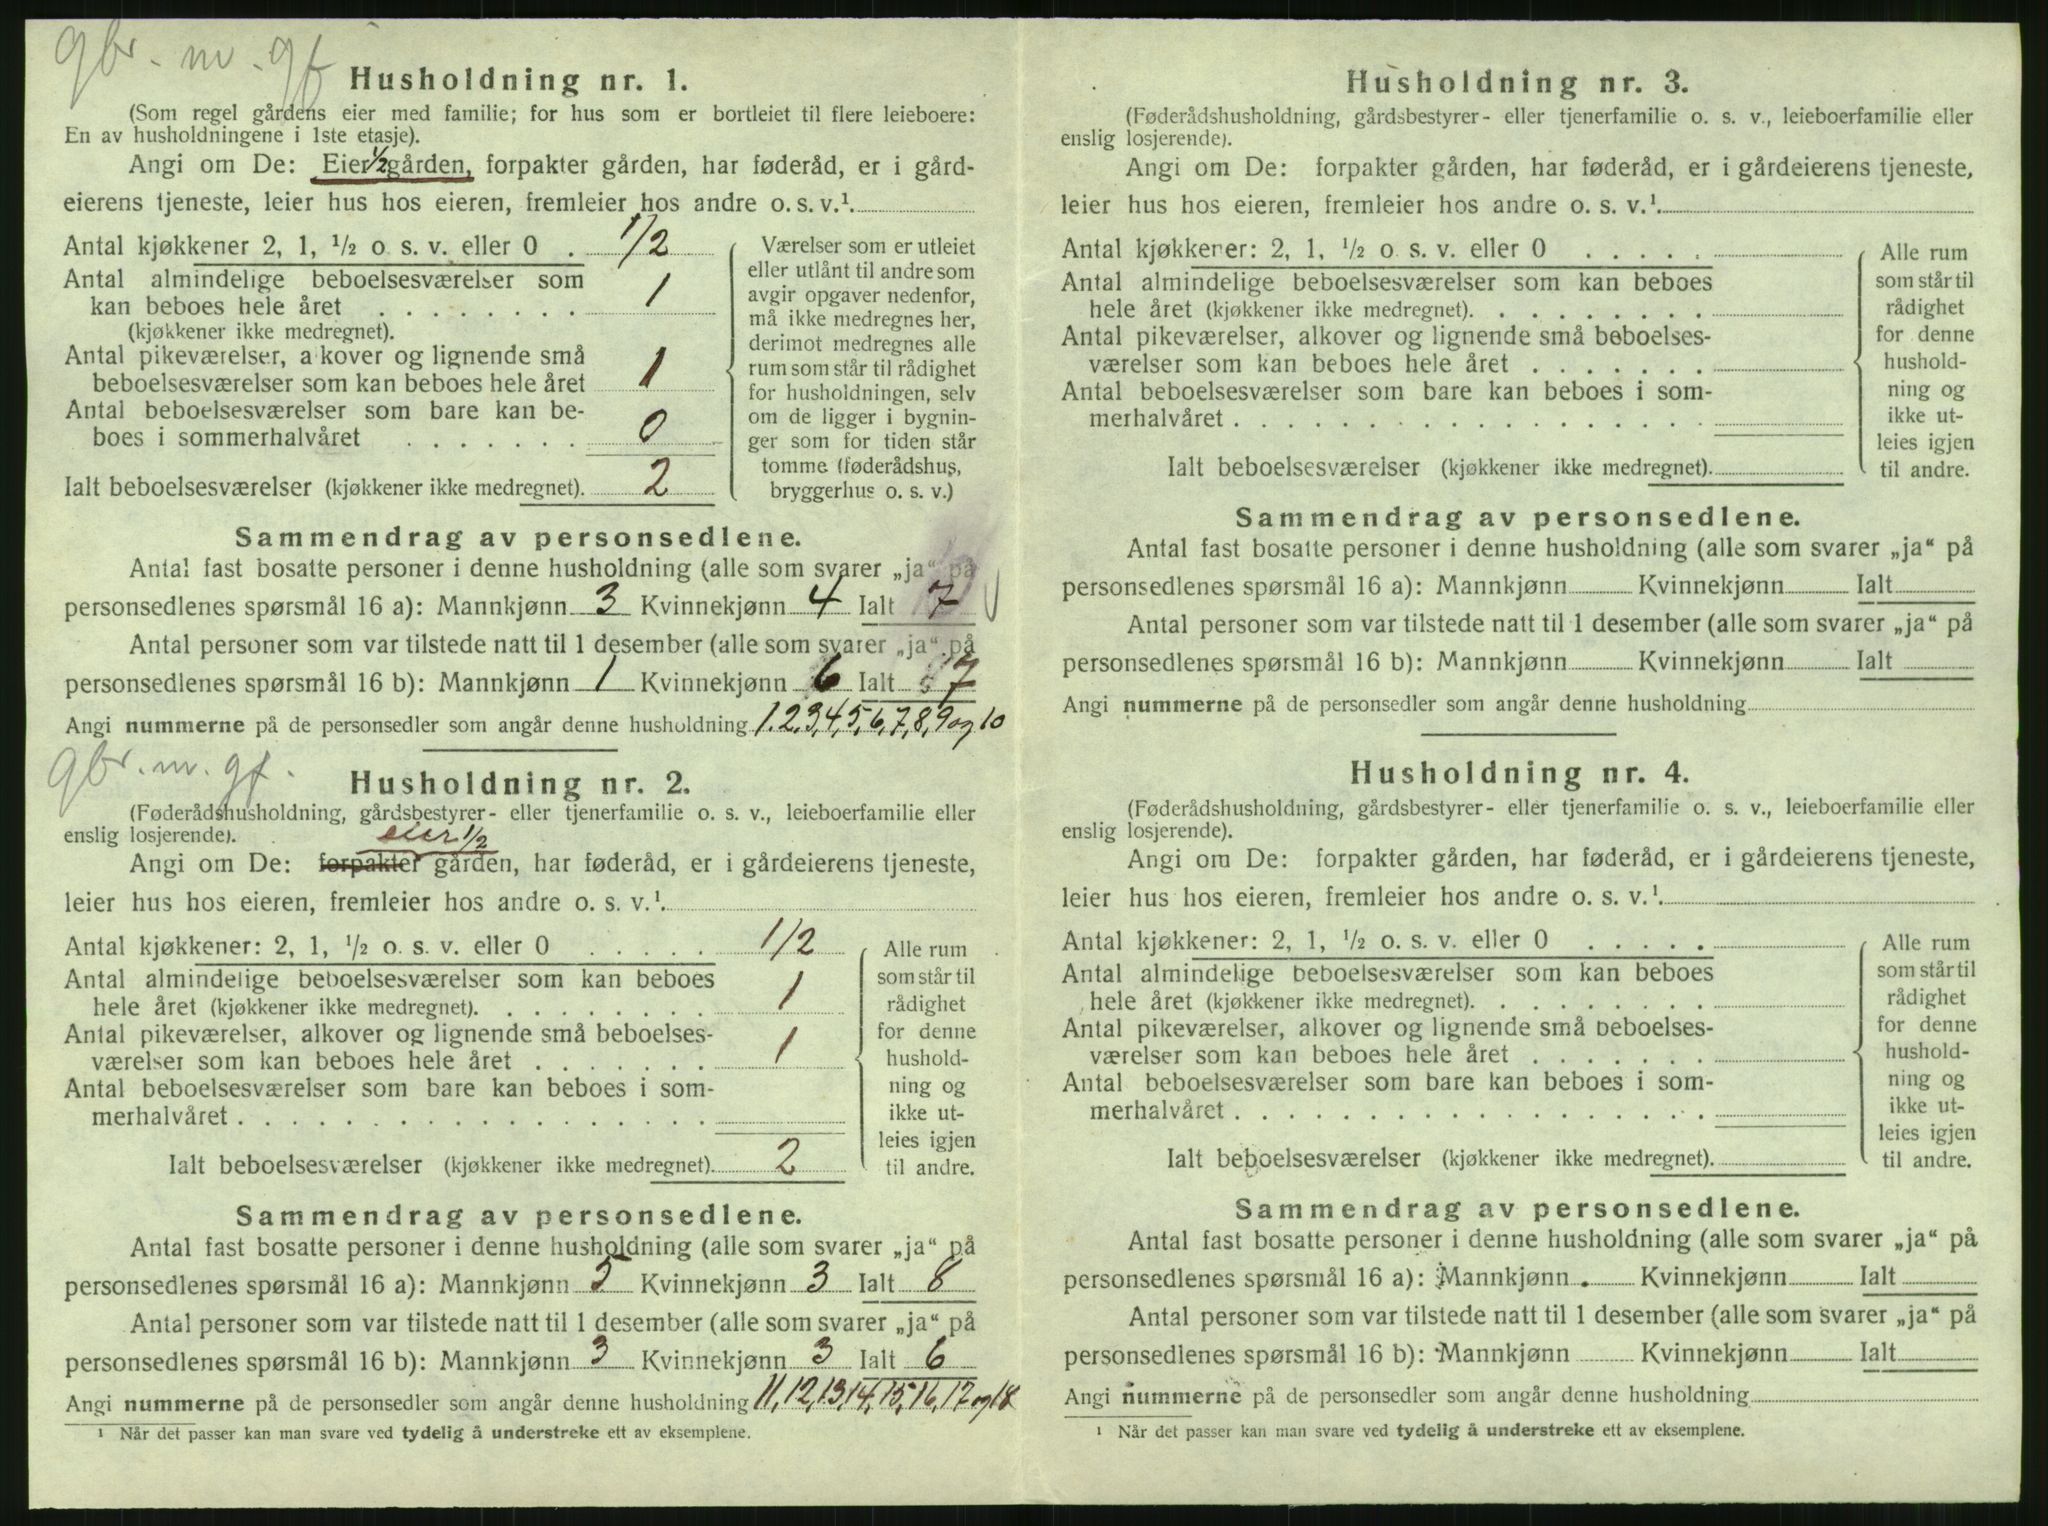 gbr. m. gf
Husholdning nr. 1.
(Som regel gårdens eier med familie; for hus som er bortleiet til flere leieboere:
En av husholdningene i 1ste etasje).
Angi om De: Eier 1/2 gården, forpakter gården, har føderåd, er i gård-
eierens tjeneste, leier hus hos eieren, fremleier hos andre o. s. v.¹.
Antal kjøkkener 2, 1, ½ o. s. v. eller 0 . 1/2
Antal almindelige beboelsesværelser som
kan beboes hele året . . . . . . . . 1
(kjøkkener ikke medregnet).
Antal pikeværelser, a kover og lignende små
beboelsesværelser som kan beboes hele året 1
Antal beboelsesværelser som bare kan be-
boes i sommerhalvåret . . . . . . . 0
Ialt beboelsesværelser (kjøkkener ikke medregnet). 2
Værelser som er utleiet
eller utlånt til andre som
avgir opgaver nedenfor,
må ikke medregnes her,
derimot medregnes alle
rum som står til rådighet
for husholdningen, selv
om de ligger i bygnin-
ger som for tiden står
tomme (føderådshus,
bryggerhus o. s. v.)
Sammendrag av personsedlene.
Antal fast bosatte personer i denne husholdning (alle som svarer „ja“ på
personsedlenes spørsmål 16 a): Mannkjønn 3 Kvinnekjønn 4 Ialt 7
Antal personer som var tilstede natt til 1 desember (alle som svarer „ja“ på
personsedlenes spørsmål 16 b): Mannkjønn 1 Kvinnekjønn 6 Ialt 7
Angi nummerne på de personsedler som angår denne husholdning 1.2,3,4,5,6,7,8,9 og 10
gbr. m. gf.
Husholdning nr. 2.
(Føderådshusholdning, gårdsbestyrer- eller tjenerfamilie o. s. v., leieboerfamilie eller
enslig losjerende).
eier 1/2
Angi om De: forpakter gården, har føderåd, er i gårdeierens tjeneste,
leier hus hos eieren, fremleier hos andre o. s. v.¹.
Antal kjøkkener: 2, 1, ½ o. s. v. eller 0 . . . . . 1/2
Antal almindelige beboelsesværelser som kan beboes
hele året (kjøkkener ikke medregnet). . . . . . . . . 1
Antal pikeværelser, alkover og lignende små beboelses-
værelser som kan beboes hele året . . . . . . . 1
Antal beboelsesværelser som bare kan beboes i som-
merhalvåret . . . . . . . . . . . . . . . . . .
Ialt beboelsesværelser (kjøkkener ikke medregnet). 2
Alle rum
som står til
rådighet
for denne
hushold-
ning og
ikke ut-
leies igjen
til andre.
Sammendrag av personsedlene.
Antal fast bosatte personer i denne husholdning (alle som svarer „ja“ på
personsedlenes spørsmål 16 a): Mannkjønn 5 Kvinnekjønn 3 Ialt 8
Antal personer som var tilstede natt til 1 desember (alle som svarer „ja“ på
personsedlenes spørsmål 16 b): Mannkjønn 3 Kvinnekjønn 3 Ialt 6
Angi nummerne på de personsedler som angår denne husholdning 11,12,13,14,15,16,17 og 18
¹ Når det passer kan man svare ved tydelig å understreke ett av eksemplene.
Husholdning nr. 3.
(Føderådshusholdning, gårdsbestyrer- eller tjenerfamilie o. s. v., leieboerfamilie eller
enslig losjerende).
Angi om De: forpakter gården, har føderåd, er i gårdeierens tjeneste,
leier hus hos eieren, fremleier hos andre o. s. v.¹.
Antal kjøkkener: 2, 1, ½ o. s. v. eller 0 . . . . .
Antal almindelige beboelsesværelser som kan beboes
hele året (kjøkkener ikke medregnet). . . . . . . . .
Antal pikeværelser, alkover og lignende små beboelses-
værelser som kan beboes hele året . . . . . . .
Antal beboelsesværelser som bare kan beboes i som-
merhalvåret . . . . . . . . . . . . . . . . . .
Ialt beboelsesværelser (kjøkkener ikke medregnet).
Alle rum
som står til
rådighet
for denne
hushold-
ning og
ikke ut-
leies igjen
til andre.
Sammendrag av personsedlene.
Antal fast bosatte personer i denne husholdning (alle som svarer „ja“ på
personsedlenes spørsmål 16 a): Mannkjønn Kvinnekjønn Ialt
Antal personer som var tilstede natt til 1 desember (alle som svarer „ja“ på
personsedlenes spørsmål 16 b): Mannkjønn Kvinnekjønn Ialt
Angi nummerne på de personsedler som angår denne husholdning
Husholdning nr. 4.
(Føderådshusholdning, gårdsbestyrer- eller tjenerfamilie o. s. v., leieboerfamilie eller
enslig losjerende).
Angi om De: forpakter gården, har føderåd, er i gårdeierens tjeneste,
leier hus hos eieren, fremleier hos andre o. s. v.¹.
Antal kjøkkener: 2, 1, ½ o. s. v. eller 0 . . . . .
Antal almindelige beboelsesværelser som kan beboes
hele året (kjøkkener ikke medregnet). . . . . . . . .
Antal pikeværelser, alkover og lignende små beboelses-
værelser som kan beboes hele året . . . . . . .
Antal beboelsesværelser som bare kan beboes i som-
merhalvåret . . . . . . . . . . . . . . . . . .
Ialt beboelsesværelser (kjøkkener ikke medregnet).
Alle rum
som står til
rådighet
for denne
hushold-
ning og
ikke ut-
leies igjen
til andre.
Sammendrag av personsedlene.
Antal fast bosatte personer i denne husholdning (alle som svarer „ja“ på
personsedlenes spørsmål 16 a): Mannkjønn Kvinnekjønn Ialt
Antal personer som var tilstede natt til 1 desember (alle som svarer „ja“ på
personsedlenes spørsmål 16 b): Mannkjønn Kvinnekjønn Ialt
Angi nummerne på de personsedler som angår denne husholdning
¹ Når det passer kan man svare ved tydelig å understreke ett av eksemplene.